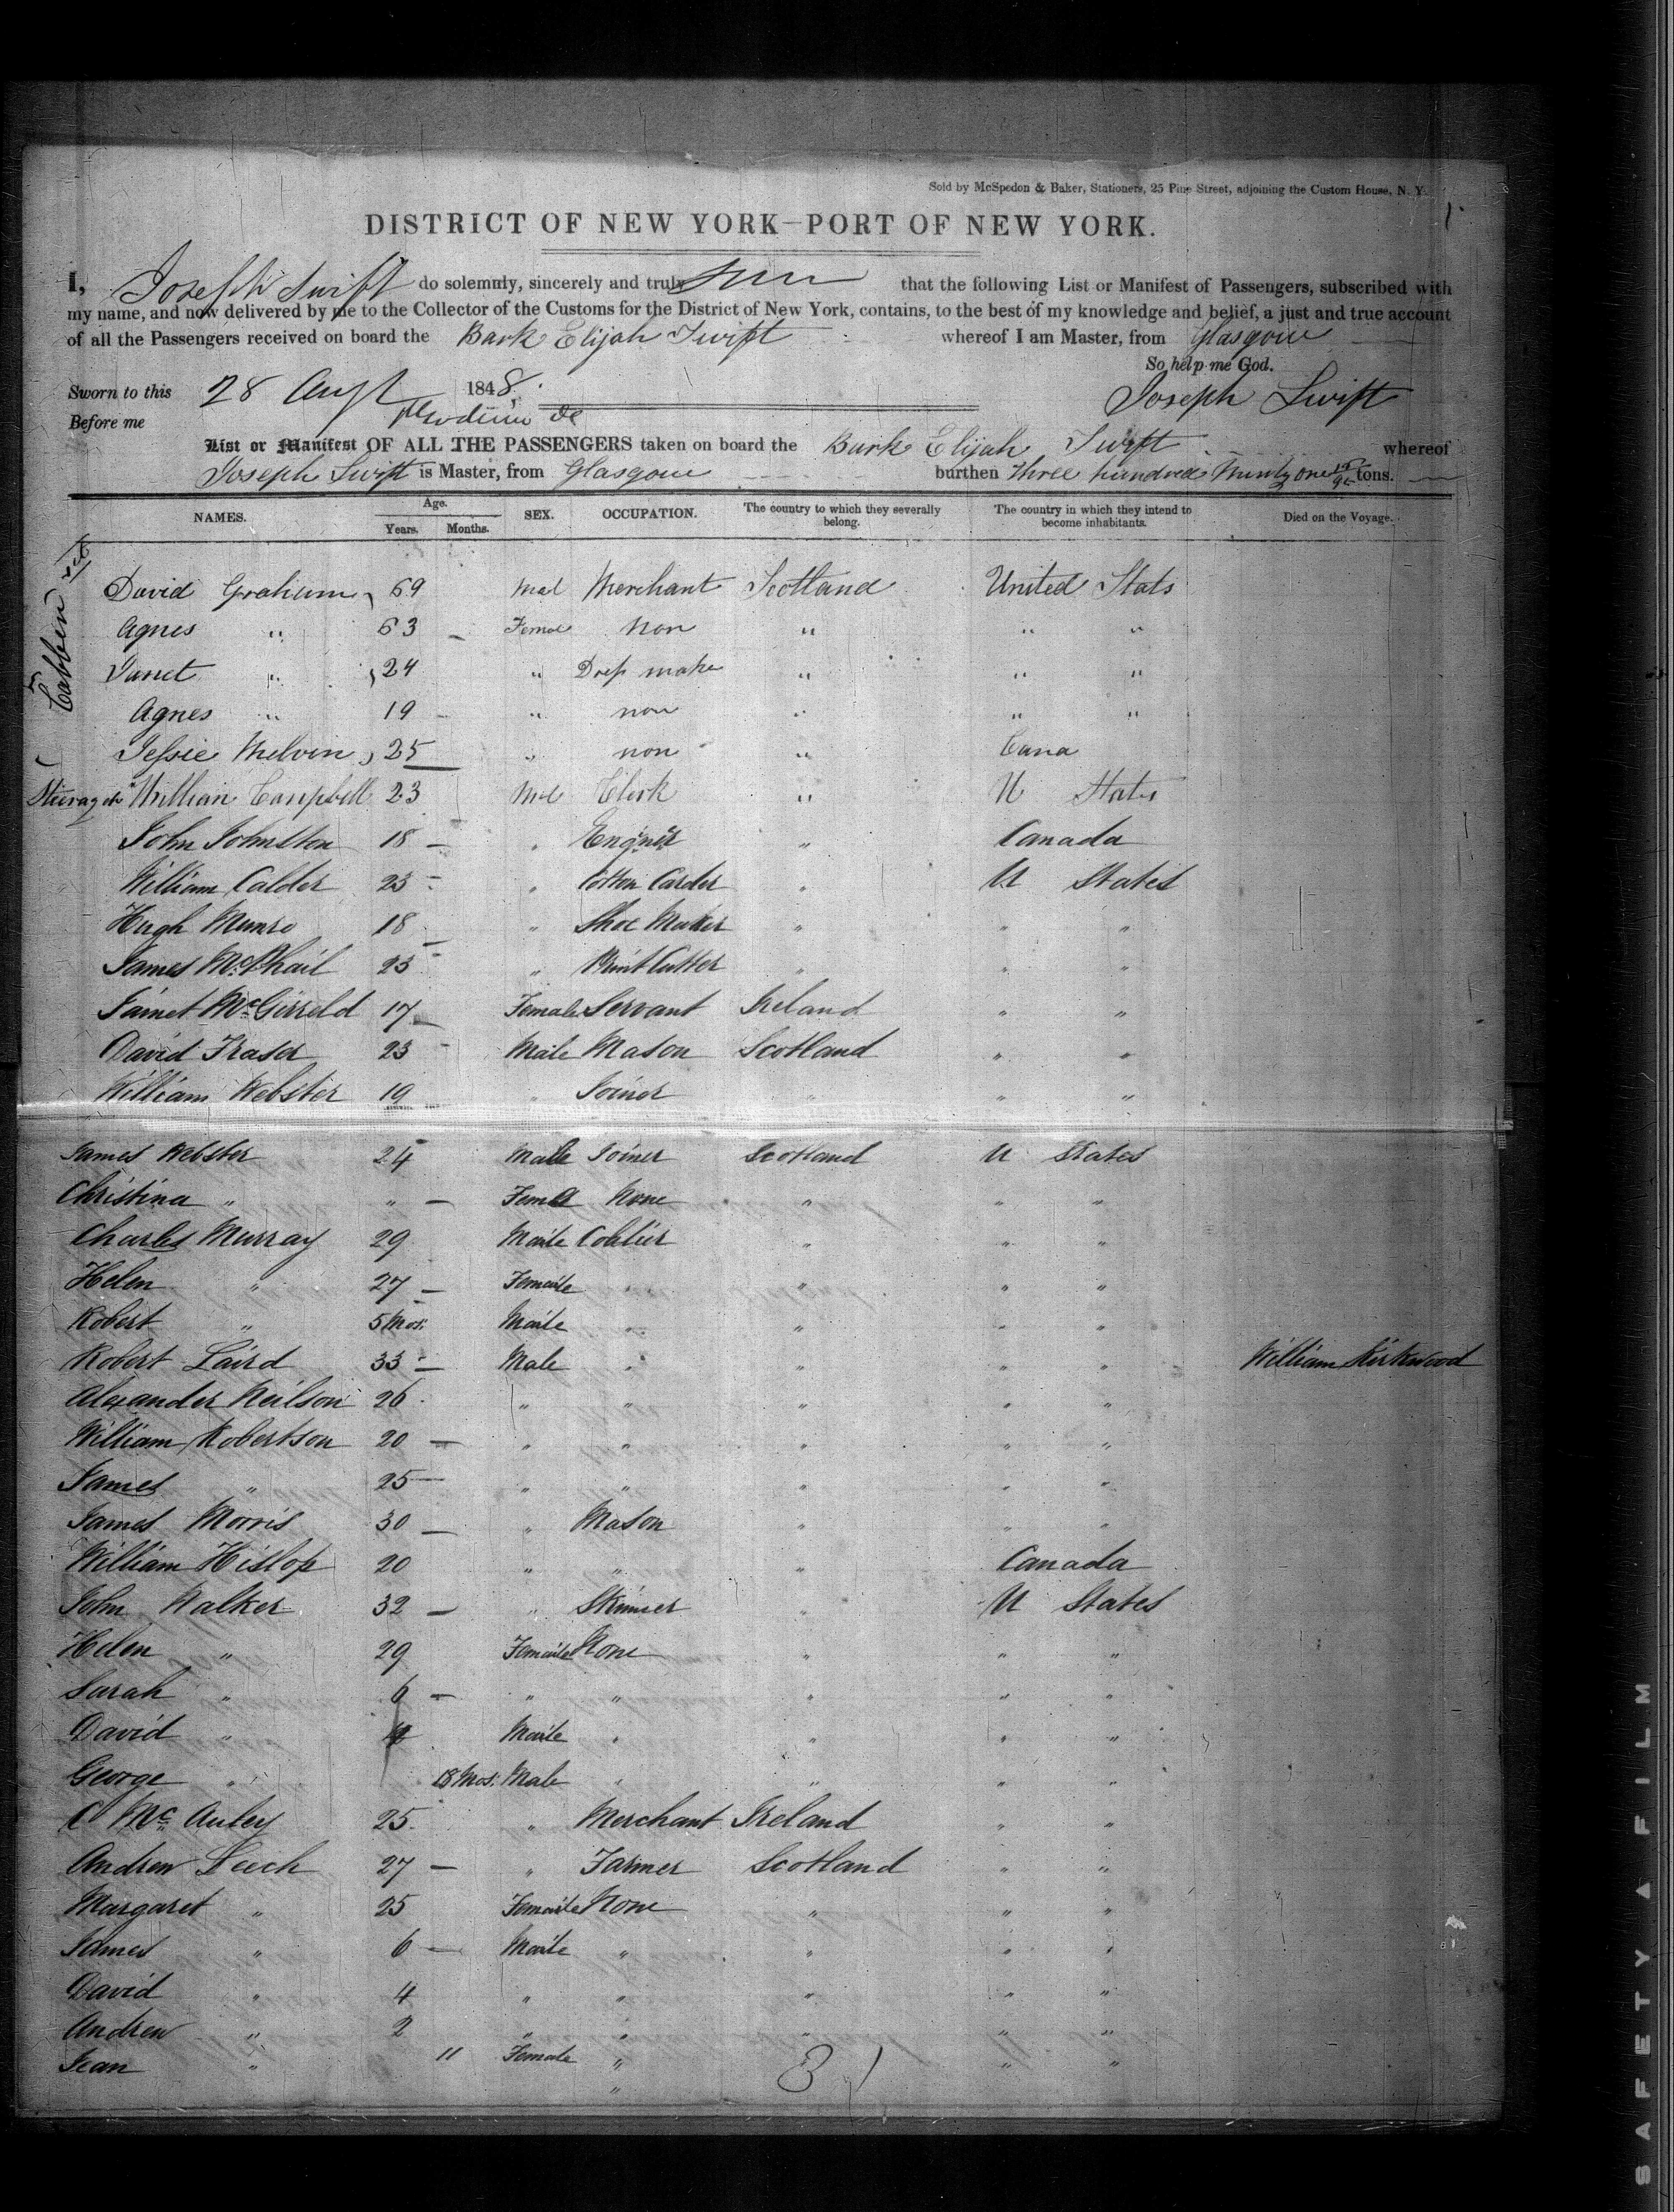 Sold by McSpedon & Baker, Stationers, 25 Pine Street, adjoining the Custom House, N. Y.
1
DISTRICT OF NEW YORK—PORT OF NEW YORK.
I, Joseph Swift do solemnly, sincerely and truly that the following List or Manifest of Passengers, subscribed with
my name, and now delivered by me to the Collector of the Customs for the District of New York, contains, to the best of my knowledge and belief, a just and true account
of all the Passengers received on board the Bark Elijah Swift whereof I am Master, from Glasgow
So help me God.
Sworn to this 28 Augt 1848. Joseph Swift
Before me
List or Manifest OF ALL THE PASSENGERS taken on board the Bark Elijah Swift whereof
Joseph Swift is Master, from Glasgow burthen three hundred thirty one tons.
NAMES. Age. Years. Months. SEX. OCCUPATION. The country to which they severally belong. The country in which they intend to become inhabitants. Died on the Voyage.
Cabben
David Graham 69 Mal Merchant Scotland United Stats
Agnes " 63 Femal Non " " "
Janet " 24 " Dress make " " "
Agnes " 19 " non " " "
Jessie Melvin 25 " non " Cana
Sturage William Campbell 23 Mal Clerk " U States
John Johnston 18 " Engner " Canada
William Calder 23 " Cotton Carder " U States
Hugh Munro 18 " Shoe Maker " " "
James McPhail 23 " Print Cutter " " "
Janet McGirreld 17 Female Servant Ireland " "
David Fraser 23 Male Mason Scotland " "
William Webster 19 " Joiner " " "
James Webster 24 Male Joiner Scotland U States
Christina " " Femal None " " "
Charles Murray 29 Maile Collier " " "
Helen " 27 Femaile " " " "
Robert " 5 Mos: Maile " " " "
Robert Laird 33 Male " " " " William Kirkwood
Alexander Neilson 26 " " " " "
William Robertson 20 " " " " "
James " 25 " " " " "
James Morris 30 " Mason " " "
William Hislop 20 " " " Canada
John Walker 32 " Skinner " U States
Helen " 29 Femaile None " " "
Sarah " 6 " " " " "
David " 4 Maile " " " "
George " 18 Mos: Male " " " "
C McAuley 25 " Merchant Ireland " "
Andrew Leech 27 " Farmer Scotland " "
Margaret " 25 Femaile None " " "
James " 6 Maile " " " "
David " 4 " " " " "
Andrew " 2 " " " " "
Jean " 11 Female " " "
"
SAFETY ▲ FILM